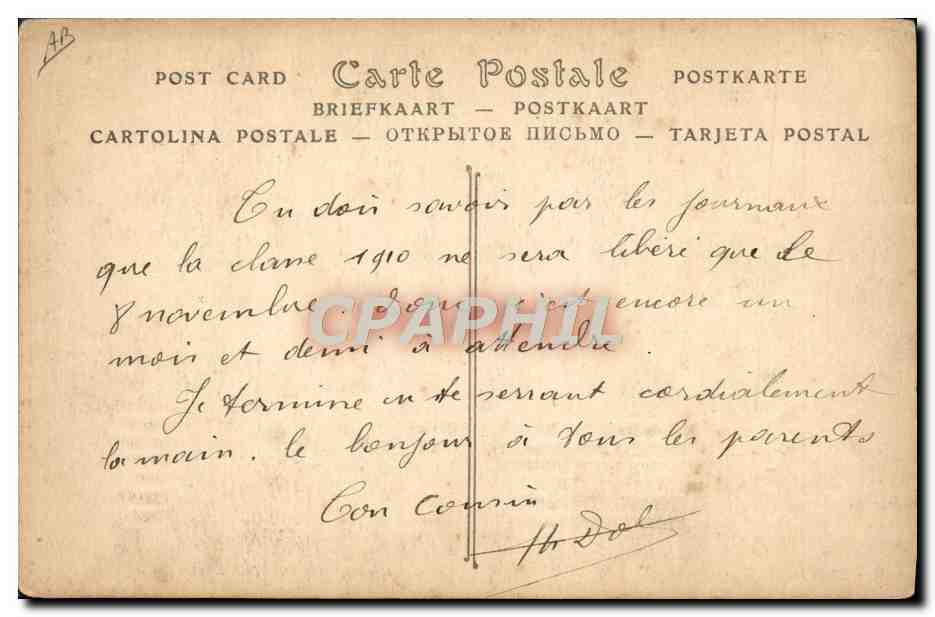 AB
POST CARD Carte Postale POSTKARTE
BRIEFKAART — POSTKAART
CARTOLINA POSTALE — ОТКРЫТОЕ ПИСЬМО — TARJETA POSTAL
Tu dois savoir par les journaux
que la classe 1910 ne sera libéré que le
8 novembre. donc c'est encore un
mois et demi à attendre.
Je termine en te serrant cordialement
la main. le bonjour à tous les parents
Ton Cousin
CPAPHIL